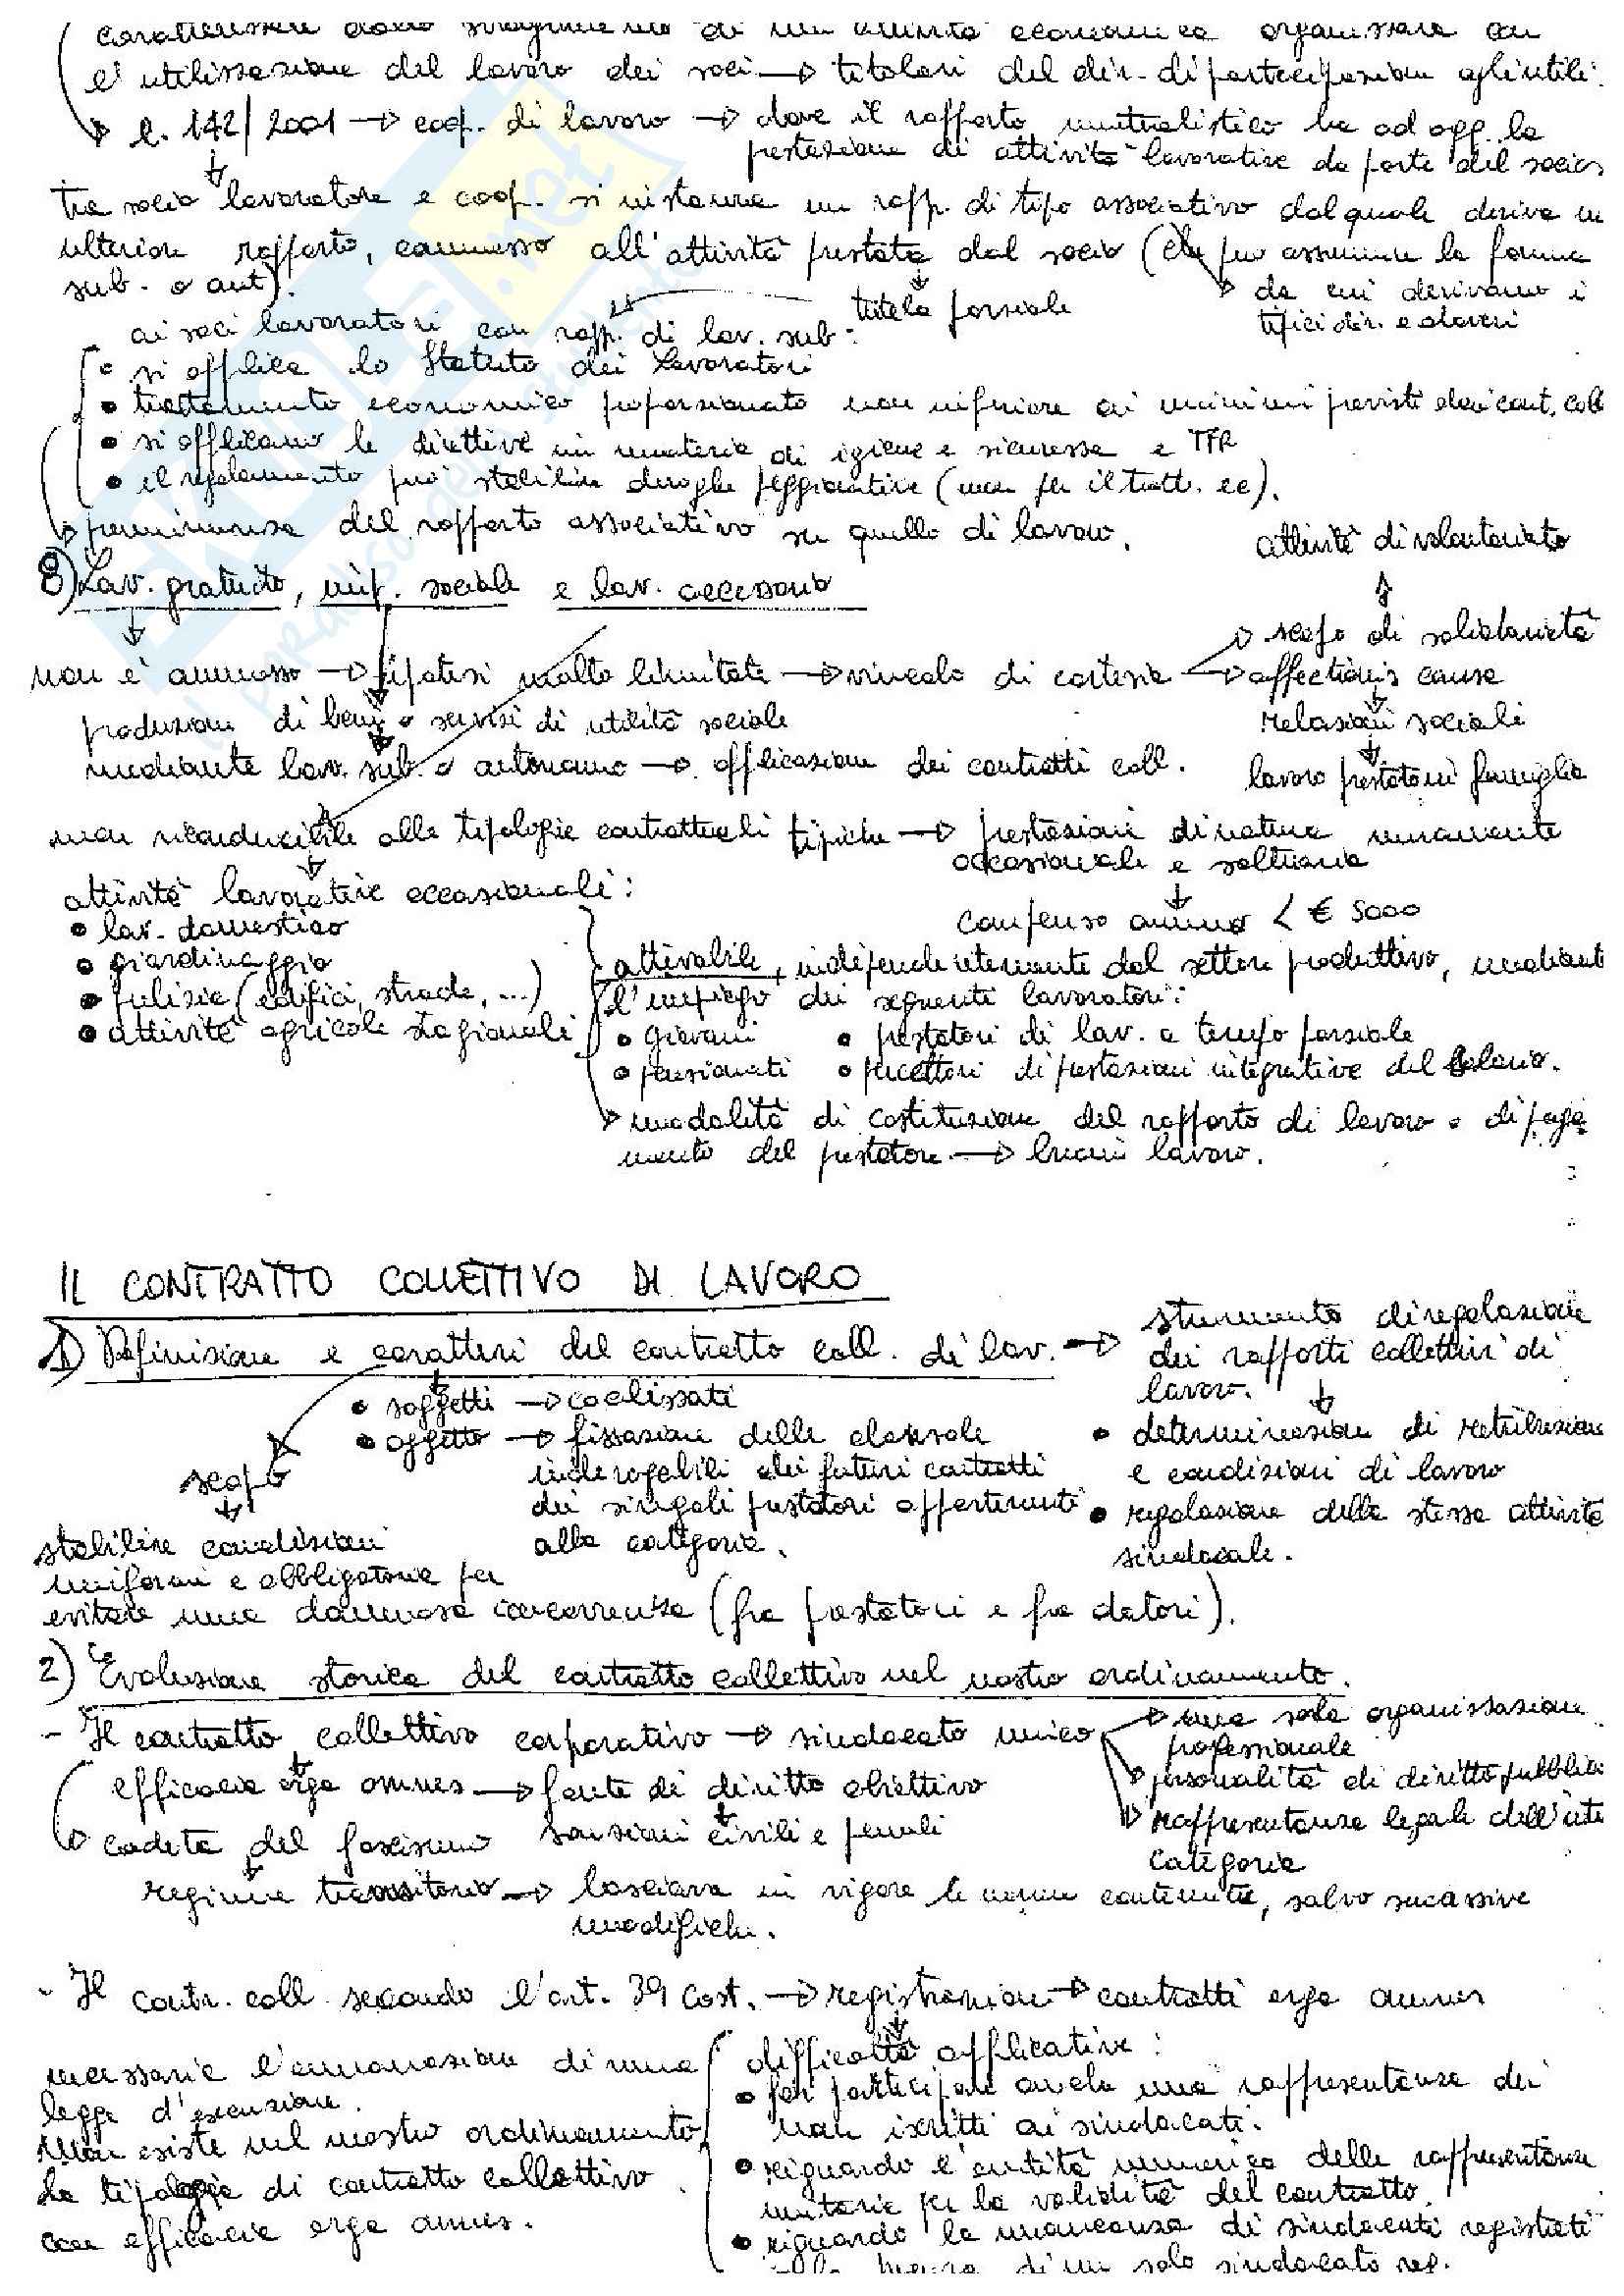 caratterizzate dallo svolgimento di un'attività economica organizzata con
l'utilizzazione del lavoro dei soci → titolari del dir. di partecipazione agli utili.
l. 142/2001 → coop. di lavoro → dove il rapporto mutualistico ha ad ogg. la
prestazione di attività lavorative da parte del socio
tra socio lavoratore e coop. si instaura un rapp. di tipo associativo dal quale deriva un
ulteriore rapporto, connesso all'attività prestata dal socio (che può assumere la forma
sub. o aut).
tutela parziale
da cui derivano i
tipici dir. e doveri
ai soci lavoratori con rapp. di lav. sub:
• si applica lo Statuto dei Lavoratori
• trattamento economico proporzionato non inferiore ai minimi previsti dai cont. coll
• si applicano le direttive in materia di igiene e sicurezza e TFR
• il regolamento può stabilire deroghe peggiorative (non per il tratt. ec).
preminenza del rapporto associativo su quello di lavoro.
attività di volontariato
8) Lav. gratuito, imp. sociale e lav. accessorio
scopo di solidarietà
non è ammesso → ipotesi molto limitate → vincolo di cortesia → affectionis causa
produzione di beni o servizi di utilità sociale
relazioni sociali
mediante lav. sub. o autonomo → applicazione dei contratti coll.
lavoro prestato in famiglia
non riconducibile alle tipologie contrattuali tipiche → prestazioni di natura meramente
occasionale e saltuaria
attività lavorative occasionali:
compenso annuo < € 5000
• lav. domestico
• giardinaggio
• pulizia (edifici, strade, ...)
• attività agricole stagionali
attivabile, indipendentemente dal settore produttivo, mediante
l'impiego dei seguenti lavoratori:
• giovani • prestatori di lav. a tempo parziale
• pensionati • percettori di prestazioni integrative del salario.
modalità di costituzione del rapporto di lavoro e di paga-
mento del prestatore → buoni lavoro.
IL CONTRATTO COLLETTIVO DI LAVORO
1) Definizione e caratteri del contratto coll. di lav. → strumento di regolazione
dei rapporti collettivi di
lavoro.
• soggetti → coalizzati
• oggetto → fissazione delle clausole
inderogabili dei futuri contratti
dei singoli prestatori appartenenti
alla categoria.
• determinazione di retribuzione
e condizioni di lavoro
• regolazione della stessa attività
sindacale.
scopo
stabilire condizioni
uniformi e obbligatorie per
evitare una dannosa concorrenza (fra prestatori e fra datori).
2) Evoluzione storica del contratto collettivo nel nostro ordinamento.
- Il contratto collettivo corporativo → sindacato unico → una sola organizzazione
professionale
personalità di diritto pubblico
rappresentanza legale dell'inte
categoria
efficacia erga omnes → fonte di diritto obiettivo
sanzioni civili e penali
caduta del fascismo
regime transitorio → lasciava in vigore le norme contenute, salvo successive
modifiche.
- Il contr. coll. secondo l'art. 39 Cost. → registrazione → contratti erga omnes
necessaria l'emanazione di una
legge d'esecuzione.
Non esiste nel nostro ordinamento
la tipologia di contratto collettivo
con efficacia erga omnes.
difficoltà applicative:
• far partecipare anche una rappresentanza dei
non iscritti ai sindacati.
• riguardo l'entità numerica delle rappresentanze
unitarie per la validità del contratto.
• riguardo la mancanza di sindacati registrati
di un solo sindacato reg.